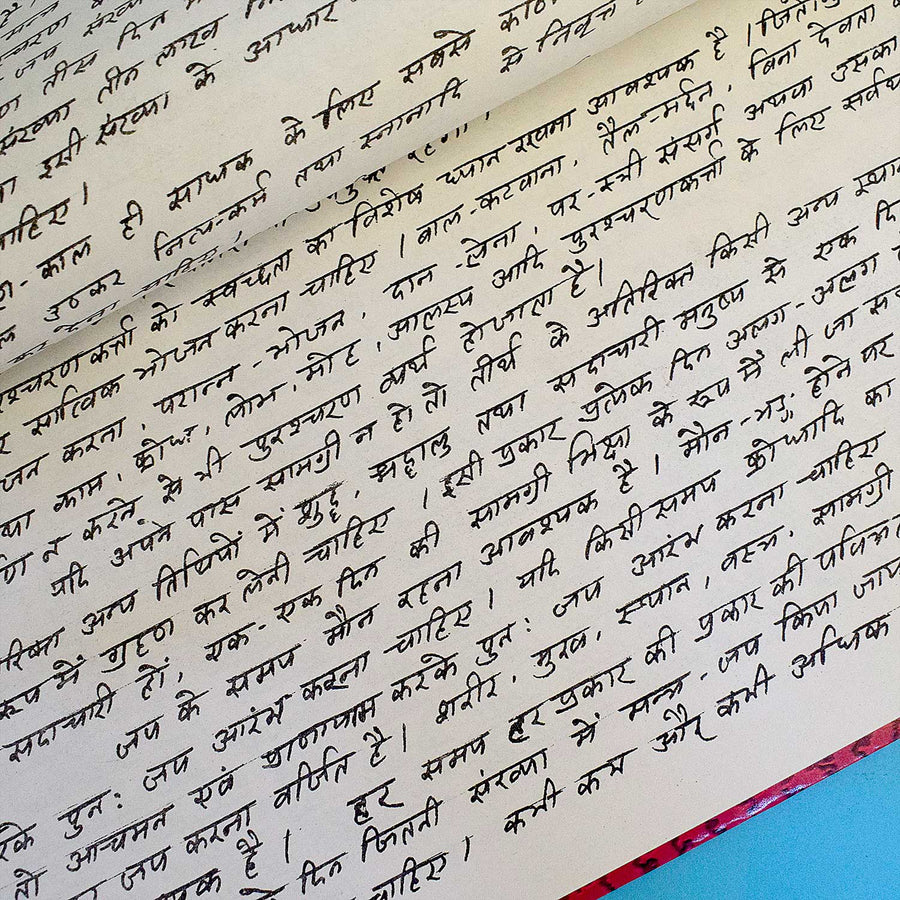 संख्या तीन लाख
इसी संख्या के आधार
चाहिए।
काल ही साधक के लिए सबसे
उठकर नित्य-कर्म तथा स्नानादि से निवृत्त
पुरश्चरणकर्त्ता को स्वच्छता का विशेष ध्यान रखना आवश्यक है।
सात्विक भोजन करना चाहिए। बाल-कटवाना, तैल-मर्दन, बिना देवता
करना, परान्न-भोजन, दान-लेना, पर-स्त्री संसर्ग अथवा उसका
काम, क्रोध, लोभ, मोह, आलस्य आदि पुरश्चरणकर्त्ता के लिए
न करने से भी पुरश्चरण व्यर्थ हो जाता है।
यदि अपने पास सामग्री न हो तो तीर्थ के अतिरिक्त किसी अन्य
अन्य तिथियों में शुद्ध, श्रद्धालु तथा सदाचारी मनुष्य से एक
रूप में ग्रहण कर लेनी चाहिए। इसी प्रकार प्रत्येक दिन अलग-अलग
सदाचारी हों, एक-एक दिन की सामग्री भिक्षा के रूप में ली जा
जप के समय मौन रहना आवश्यक है। मौन-भङ्ग होने पर
पुनः जप आरंभ करना चाहिए। यदि किसी समय क्रोधादि का
तो आचमन एवं प्राणायाम करके पुनः जप आरंभ करना चाहिए
जप करना वर्जित है। शरीर, मुख, स्थान, वस्त्र, सामग्री
है। हर समय हर प्रकार की प्रकार की
दिन जितनी संख्या में मन्त्र-जप किया
चाहिए। कभी कम और कभी अधिक